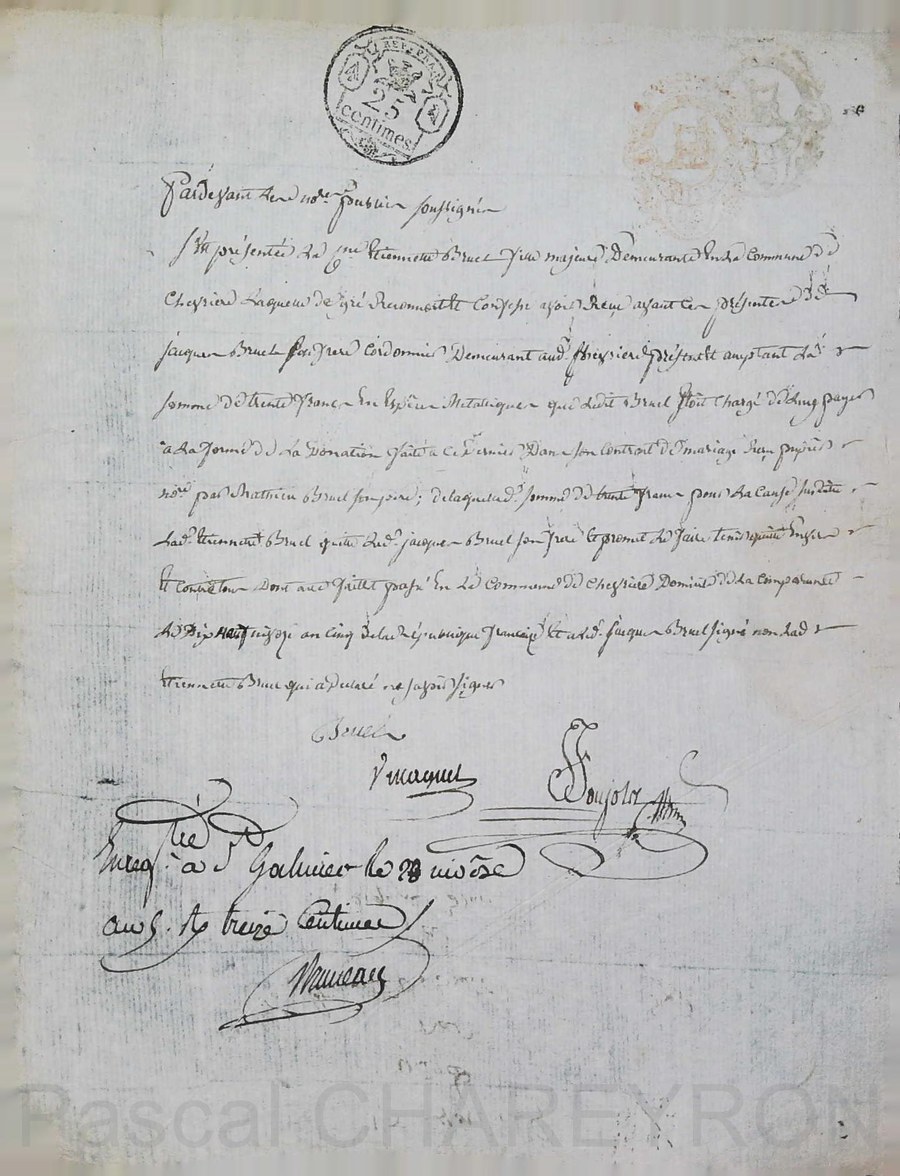 REP. FRA.
25
centimes
Pardevant le no.re public soussigné
S'est présentée la Etiennette Bruel fille majeure Demeurante En la Commune de
Chevriere Laquelle de gré Reconnoit Et Confesse avoir Reçu avant Ces présentes de
jacques Bruel son frere Cordonnier Demeurant aud. Chevriere présent Et acceptant La
somme de trente francs En Espèces Metalliques que Ledit Bruel Etoit Chargé de Luy payer
a La forme de La Donation faite a Ce Dernier Dans son Contrat de mariage Reçu
no.re par Mathieu Bruel son pere; de laquelle d. somme de trente francs pour La Cause susdite
Lad. Etiennette Bruel quitte Led. jacques Bruel son frere Et promet Le faire tenir quitte Envers
Et Contre tous Dont acte fait Et passé En La Commune de Chevriere Domicile de La Comparante
Le Dix nivose an Cinq de la République française Et a Led. Jacques Bruel signé non Lad
Etiennette Bruel qui a Declaré ne savoir signer
Bruel
Vmaquet
Poujolz
Enreg.tré à St Galmier le 28 nivôse
an 5. Rç treize Centimes
Pascal CHAREYRON